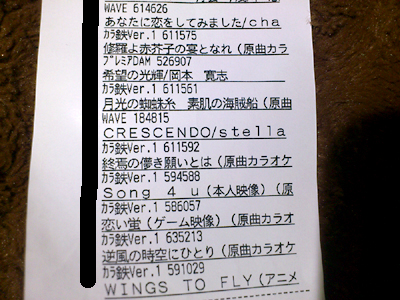 WAVE 614626
あなたに恋をしてみました/cha
ｶﾗ鉄Ver.1 611575
修羅よ赤芥子の宴となれ（原曲カラ
ﾌﾟﾚﾐｱDAM 526907
希望の光輝/岡本 寛志
ｶﾗ鉄Ver.1 611561
月光の蜘蛛糸 素肌の海賊船（原曲
WAVE 184815
CRESCENDO/stella
ｶﾗ鉄Ver.1 611592
終焉の儚き願いとは（原曲カラオケ
ｶﾗ鉄Ver.1 594588
Song 4 u（本人映像）（原
ｶﾗ鉄Ver.1 586057
恋い蛍（ゲーム映像）（原曲カラオ
ｶﾗ鉄Ver.1 635213
逆風の時空にひとり（原曲カラオケ
ｶﾗ鉄Ver.1 591029
WINGS TO FLY（アニメ